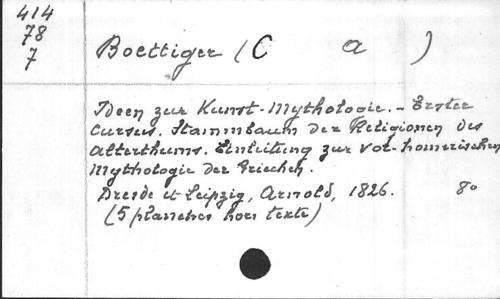 414
78
7
Boettiger (C a )
Ideen zur Kunst-Mythologie. - Erster
Cursus. Stammbaum der Religionen des
Alterthums. Einleitung zur vor-homerischen
Mythologie der Griechen.
Dresde et Leipzig, Arnold, 1826. 8º
(5 planches hors texte)